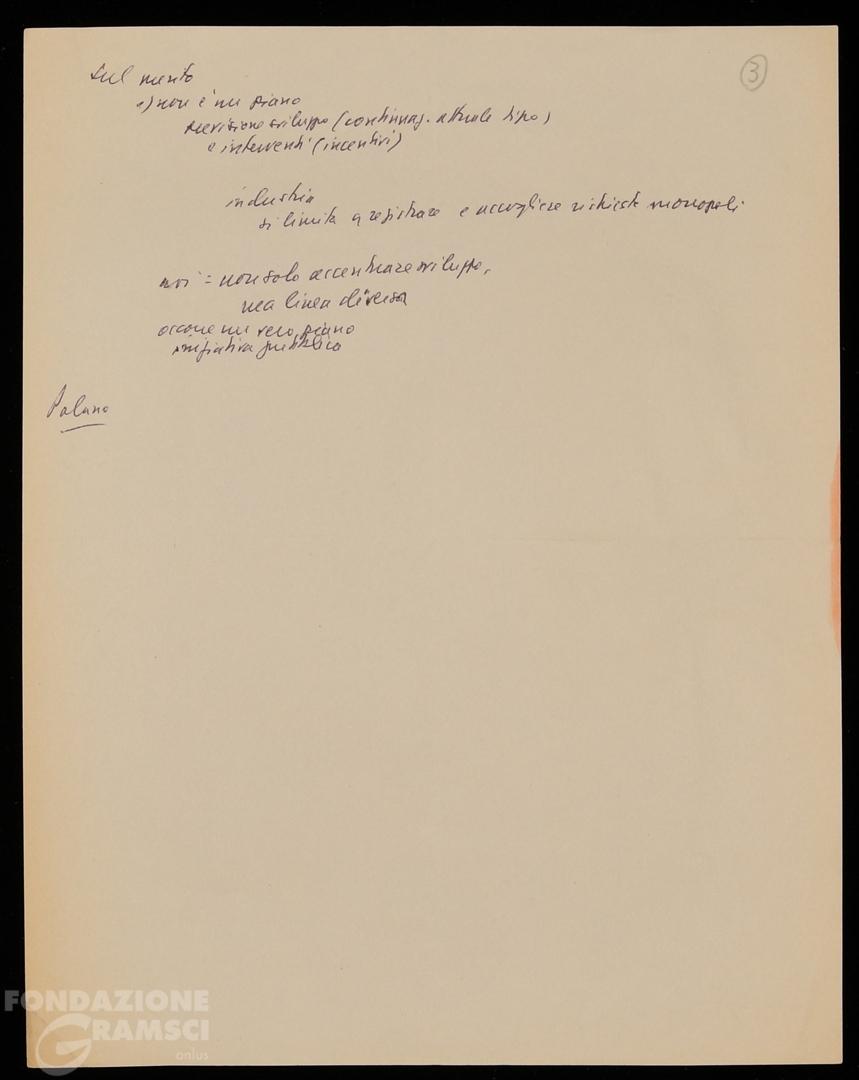 3
Sul merito
a) non è un piano
previsione sviluppo (continuaz. attuale tipo)
e interventi (incentivi)
industria
si limita a registrare e accogliere richieste monopoli
noi = non solo accentuare sviluppo,
ma linea diversa
occorre un vero piano
iniziativa pubblica
FONDAZIONE
GRAMSCI
onlus